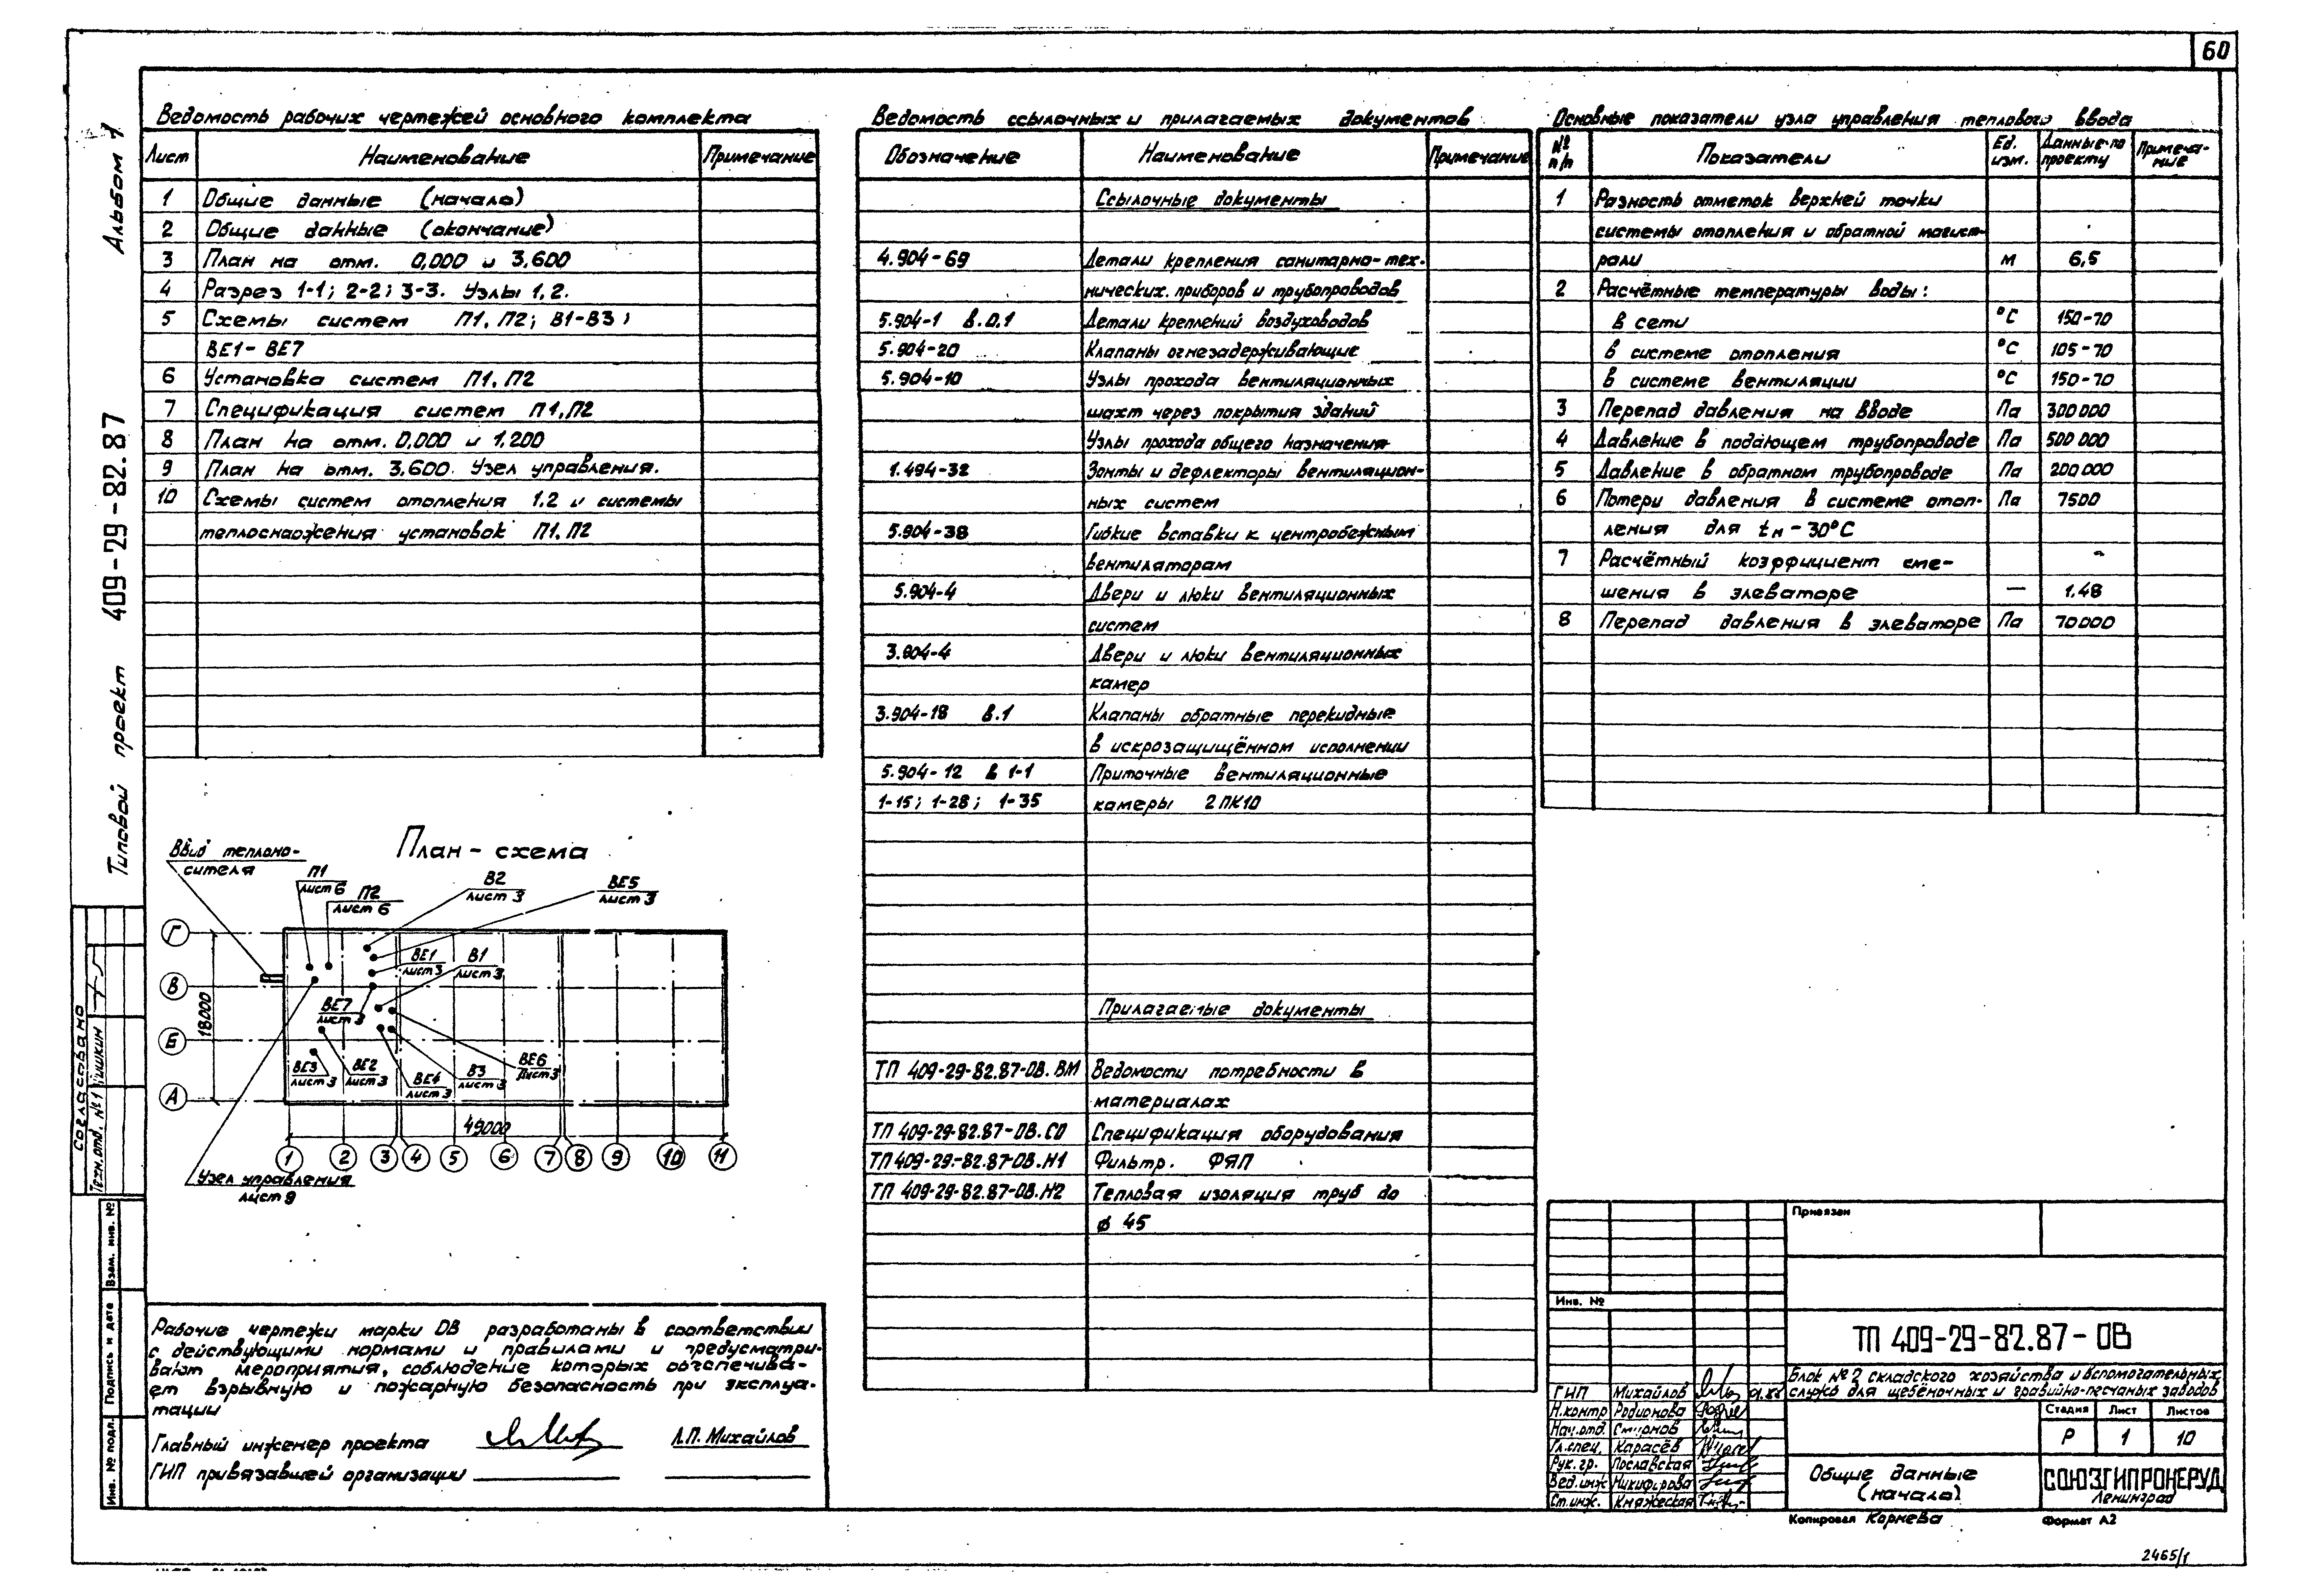 60
Альбом 1
Типовой проект 409-29-82.87
Ведомость рабочих чертежей основного комплекта
Лист Наименование Примечание
1 Общие данные (начало)
2 Общие данные (окончание)
3 План на отм. 0,000 и 3.600
4 Разрез 1-1; 2-2; 3-3. Узлы 1, 2.
5 Схемы систем П1, П2; В1-В3;
ВЕ1-ВЕ7
6 Установка систем П1, П2
7 Спецификация систем П1, П2
8 План на отм. 0,000 и 1.200
9 План на отм. 3.600. Узел управления.
10 Схемы систем отопления 1.2 и системы
теплоснажения установок П1, П2
Ведомость ссылочных и прилагаемых документов
Обозначение Наименование Примечание
Ссылочные документы
4.904-69 Детали крепления санитарно-тех-
нических приборов и трубопроводов
5.904-1 в.0,1 Детали креплений воздуховодов
5.904-20 Клапаны огнезадерживающие
5.904-10 Узлы прохода вентиляционных
шахт через покрытия зданий
Узлы прохода общего назначения
1.494-32 Зонты и дефлекторы вентиляцион-
ных систем
5.904-38 Гибкие вставки к центробежным
вентиляторам
5.904-4 Двери и люки вентиляционных
систем
3.904-4 Двери и люки вентиляционных
камер
3.904-18 в.1 Клапаны обратные перекидные
в искрозащищённом исполнении
5.904-12 в 1-1 Приточные вентиляционные
1-15; 1-28; 1-35 камеры 2ПК10
Прилагаемые документы
ТП 409-29-82.87-ОВ.ВМ Ведомости потребности в
материалах
ТП 409-29-82.87-ОВ.СО Спецификация оборудования
ТП 409-29-82.87-ОВ.Н1 Фильтр. ФЯП
ТП 409-29-82.87-ОВ.Н2 Тепловая изоляция труб до
ø 45
Основные показатели узла управления теплового ввода
№ п/п Показатели Ед. изм. Данные по проекту Примеча-ние
1 Разность отметок верхней точки
системы отопления и обратной магист-
рали м 6,5
2 Расчётные температуры воды:
в сети °С 150-70
в системе отопления °С 105-70
в системе вентиляции °С 150-70
3 Перепад давления на вводе Па 300000
4 Давление в подающем трубопроводе Па 500000
5 Давление в обратном трубопроводе Па 200000
6 Потери давления в системе отоп- Па 7500
ления для tн-30°С
7 Расчётный коэффициент сме-
шения в элеваторе — 1.48
8 Перепад давления в элеваторе Па 70000
План-схема
Ввод теплоно-
сителя
П1
лист 6
П2
лист 6
В2
лист 3
ВЕ5
лист 3
ВЕ1
лист 3
В1
лист 3
ВЕ7
лист 3
ВЕ3
лист 3
ВЕ2
лист 3
ВЕ4
лист 3
В3
лист 3
ВЕ6
Лист 3
Г
В
Б
А
18000
49000
1 2 3 4 5 6 7 8 9 10 11
Узел управления
лист 9
Рабочие чертежи марки ОВ разработаны в соответствии
с действующими нормами и правилами и предусматри-
вают мероприятия, соблюдение которых обеспечива-
ет взрывную и пожарную безопасность при эксплуа-
тации
Главный инженер проекта Л.П. Михайлов
ГИП привязавшей организации
Согласовано
Техн.отд. №1 Шишкин
Взам. инв. №
Подпись и дата
Инв. № подл.
Привязан
Инв. №
ТП 409-29-82.87-ОВ
Блок №2 складского хозяйства и вспомогательных
служб для щебёночных и гравийно-песчаных заводов
ГИП Михайлов
Н.контр Родионова
Нач.отд. Смирнов
Гл.спец. Карасёв
Рук.гр. Пославская
Вед.инж Никифорова
Ст.инж. Княжеская
Стадия Лист Листов
Р 1 10
Общие данные
(начало)
СОЮЗГИПРОНЕРУД
Ленинград
Копировал Корнева
Формат А2
2465/1